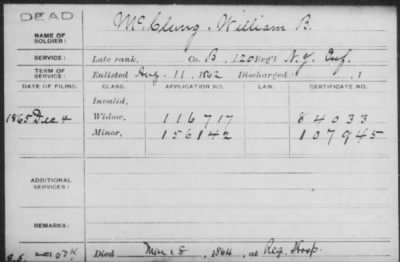 DEAD
NAME OF SOLDIER: McClung, William B.
SERVICE: Late rank, Co. B, 120 Reg't N.Y. Inf.
TERM OF SERVICE: Enlisted Aug. 11, 1862 Discharged , 1
DATE OF FILING. CLASS. APPLICATION NO. LAW. CERTIFICATE NO.
Invalid,
1865 Dec 4 Widow, 116717 84033
Minor, 156142 107945
ADDITIONAL SERVICES:
REMARKS:
Died Mar 8, 1864, at Reg. Hosp.